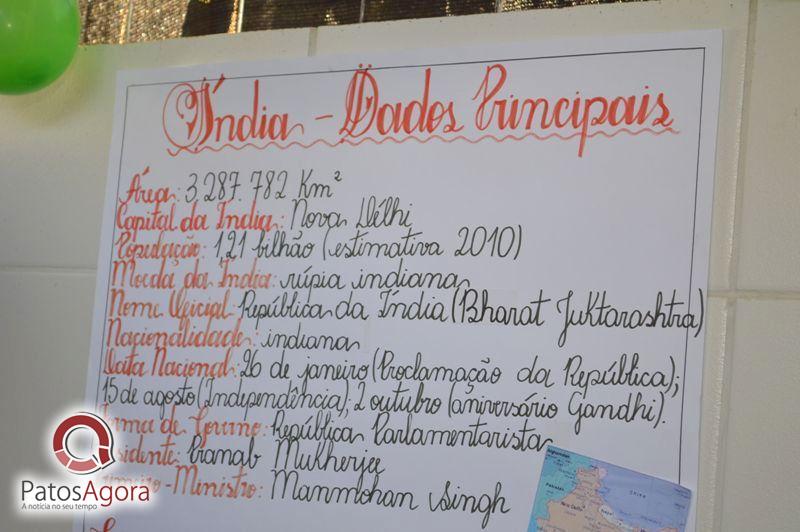 Índia - Dados Principais
Área: 3.287.782 Km²
Capital da Índia: Nova Délhi
População: 1,21 bilhão (estimativa 2010)
Moeda da Índia: rúpia indiana
Nome Oficial: República da Índia (Bharat Juktarashtra)
Nacionalidade: indiana
Data Nacional: 26 de janeiro (Proclamação da República);
15 de agosto (Independência); 2 outubro (aniversário Gandhi).
Forma de Governo: República Parlamentarista
sidente: Pranab Mukherjee
imeiro-Ministro: Manmohan Singh
PatosAgora
A notícia no seu tempo